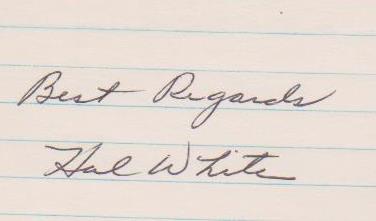 Best Regards
Hal White